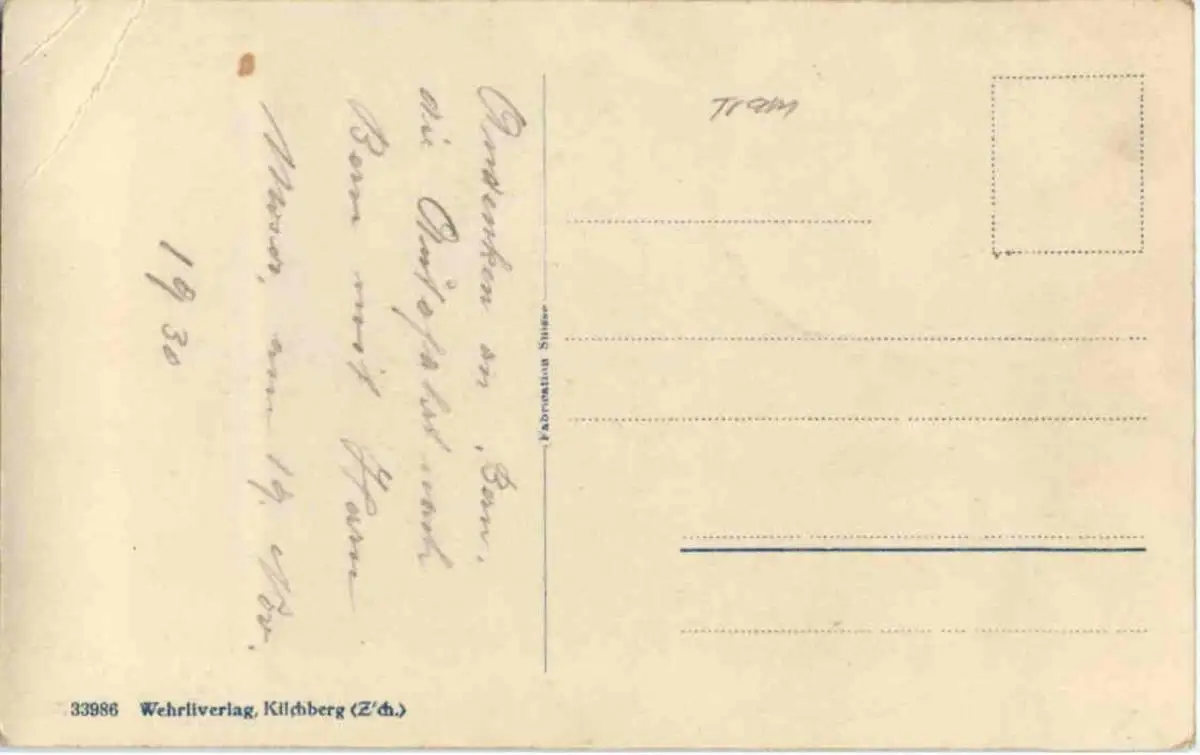 Andenken an Bern.
die Autofahrt nach
Bern mit
Moser, am 19. Nov.
1930
Tram
Fabrication Suisse
33986 Wehrliverlag, Kilchberg (Z'ch.)